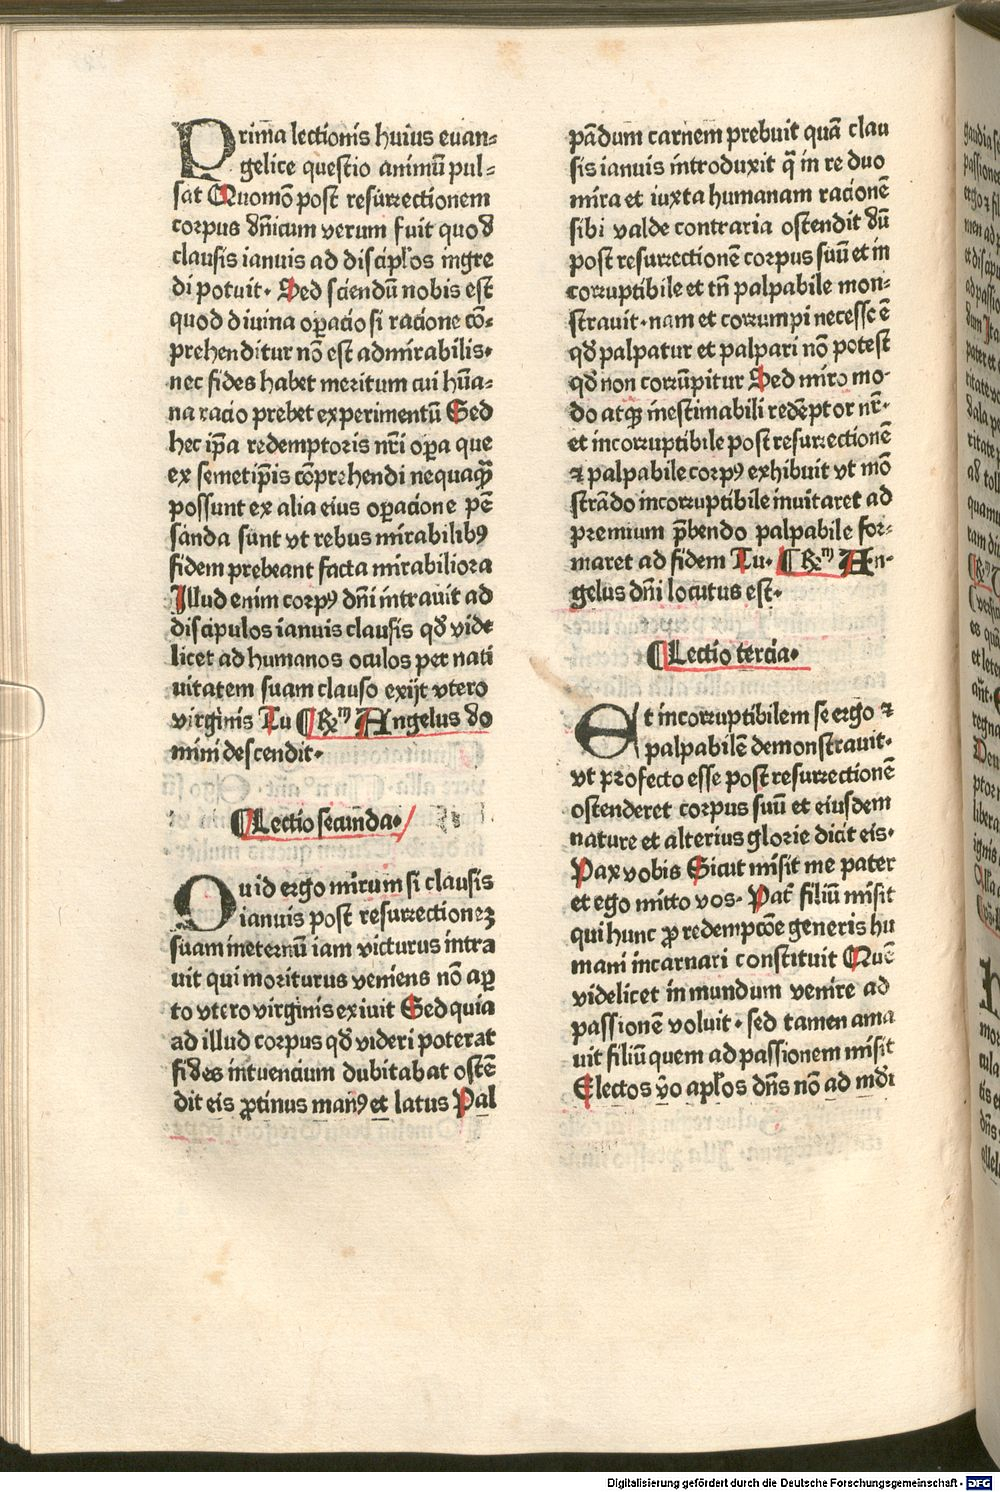 Prima lectionis huius euan⸗
gelice questio animū pul⸗
sat Quomō post resurrectionem
corpus dn̄icum verum fuit quod
clausis ianuis ad discipl'os ingre
di potuit. Sed sciendū nobis est
quod diuina oꝑacio si racione cō⸗
prehenditur nō est admirabilis.
nec fides habet meritum cui hūa⸗
na racio prebet experimentū Sed
hec ip̄a redemptoris nr̄i oꝑa que
ex semetip̄is cōprehendi nequaqȝ̄
possunt ex alia eius oꝑacione pē
sanda sunt vt rebus mirabilibꝯ
fidem prebeant facta mirabiliora
Illud enim corpꝯ dn̄i intrauit ad
discipulos ianuis clausis qd̄ vide
licet ad humanos oculos per nati
uitatem suam clauso exijt vtero
virginis Tu ¶ R̄mͫ Angelus do
mini descendit.
¶ Lectio secunda.
Quid ergo mirum si clausis
ianuis post resurrectionez
suam ineternū iam victurus intra
uit qui moriturus veniens nō aꝑ
to vtero virginis exiuit Sed quia
ad illud corpus qd̄ videri poterat
fides intuencium dubitabat ostē
dit eis ꝓtinus manꝯ et latus Pal
pādum carnem prebuit quā clau
sis ianuis introduxit q̄ in re duo
mira et iuxta humanam racionē
sibi valde contraria ostendit dū
post resurrectionē corpus suū et in
corruptibile et tn̄ palpabile mon⸗
strauit. nam et corrumpi necesse ē
qd̄ palpatur et palpari nō potest
qd̄ non corrūpitur Sed miro mo⸗
do atqꝫ inestimabili redēptor nr̄.
et incorruptibile post resurrectionē
⁊ palpabile corpꝯ exhibuit vt mō
strādo incorruptibile inuitaret ad
premium p̄bendo palpabile for⸗
maret ad fidem Tu. ¶ R̄mͫ An⸗
gelus dn̄i locutus est.
¶ Lectio tercia.
Et incorruptibilem se ergo ⁊
palpabilē demonstrauit.
vt profecto esse post resurrectionē
ostenderet corpus suū et eiusdem
nature et alterius glorie dicit eis.
Pax vobis Sicut misit me pater
et ego mitto vos. Pat̄ filiū misit
qui hunc ꝓ redempcōe generis hu
mani incarnari constituit Quē
videlicet in mundum venire ad
passionē voluit. sed tamen ama
uit filiū quem ad passionem misit
Electos v̄o apl'os dn̄s nō ad mūdi
Digitalisierung gefördert durch die Deutsche Forschungsgemeinschaft - DFG